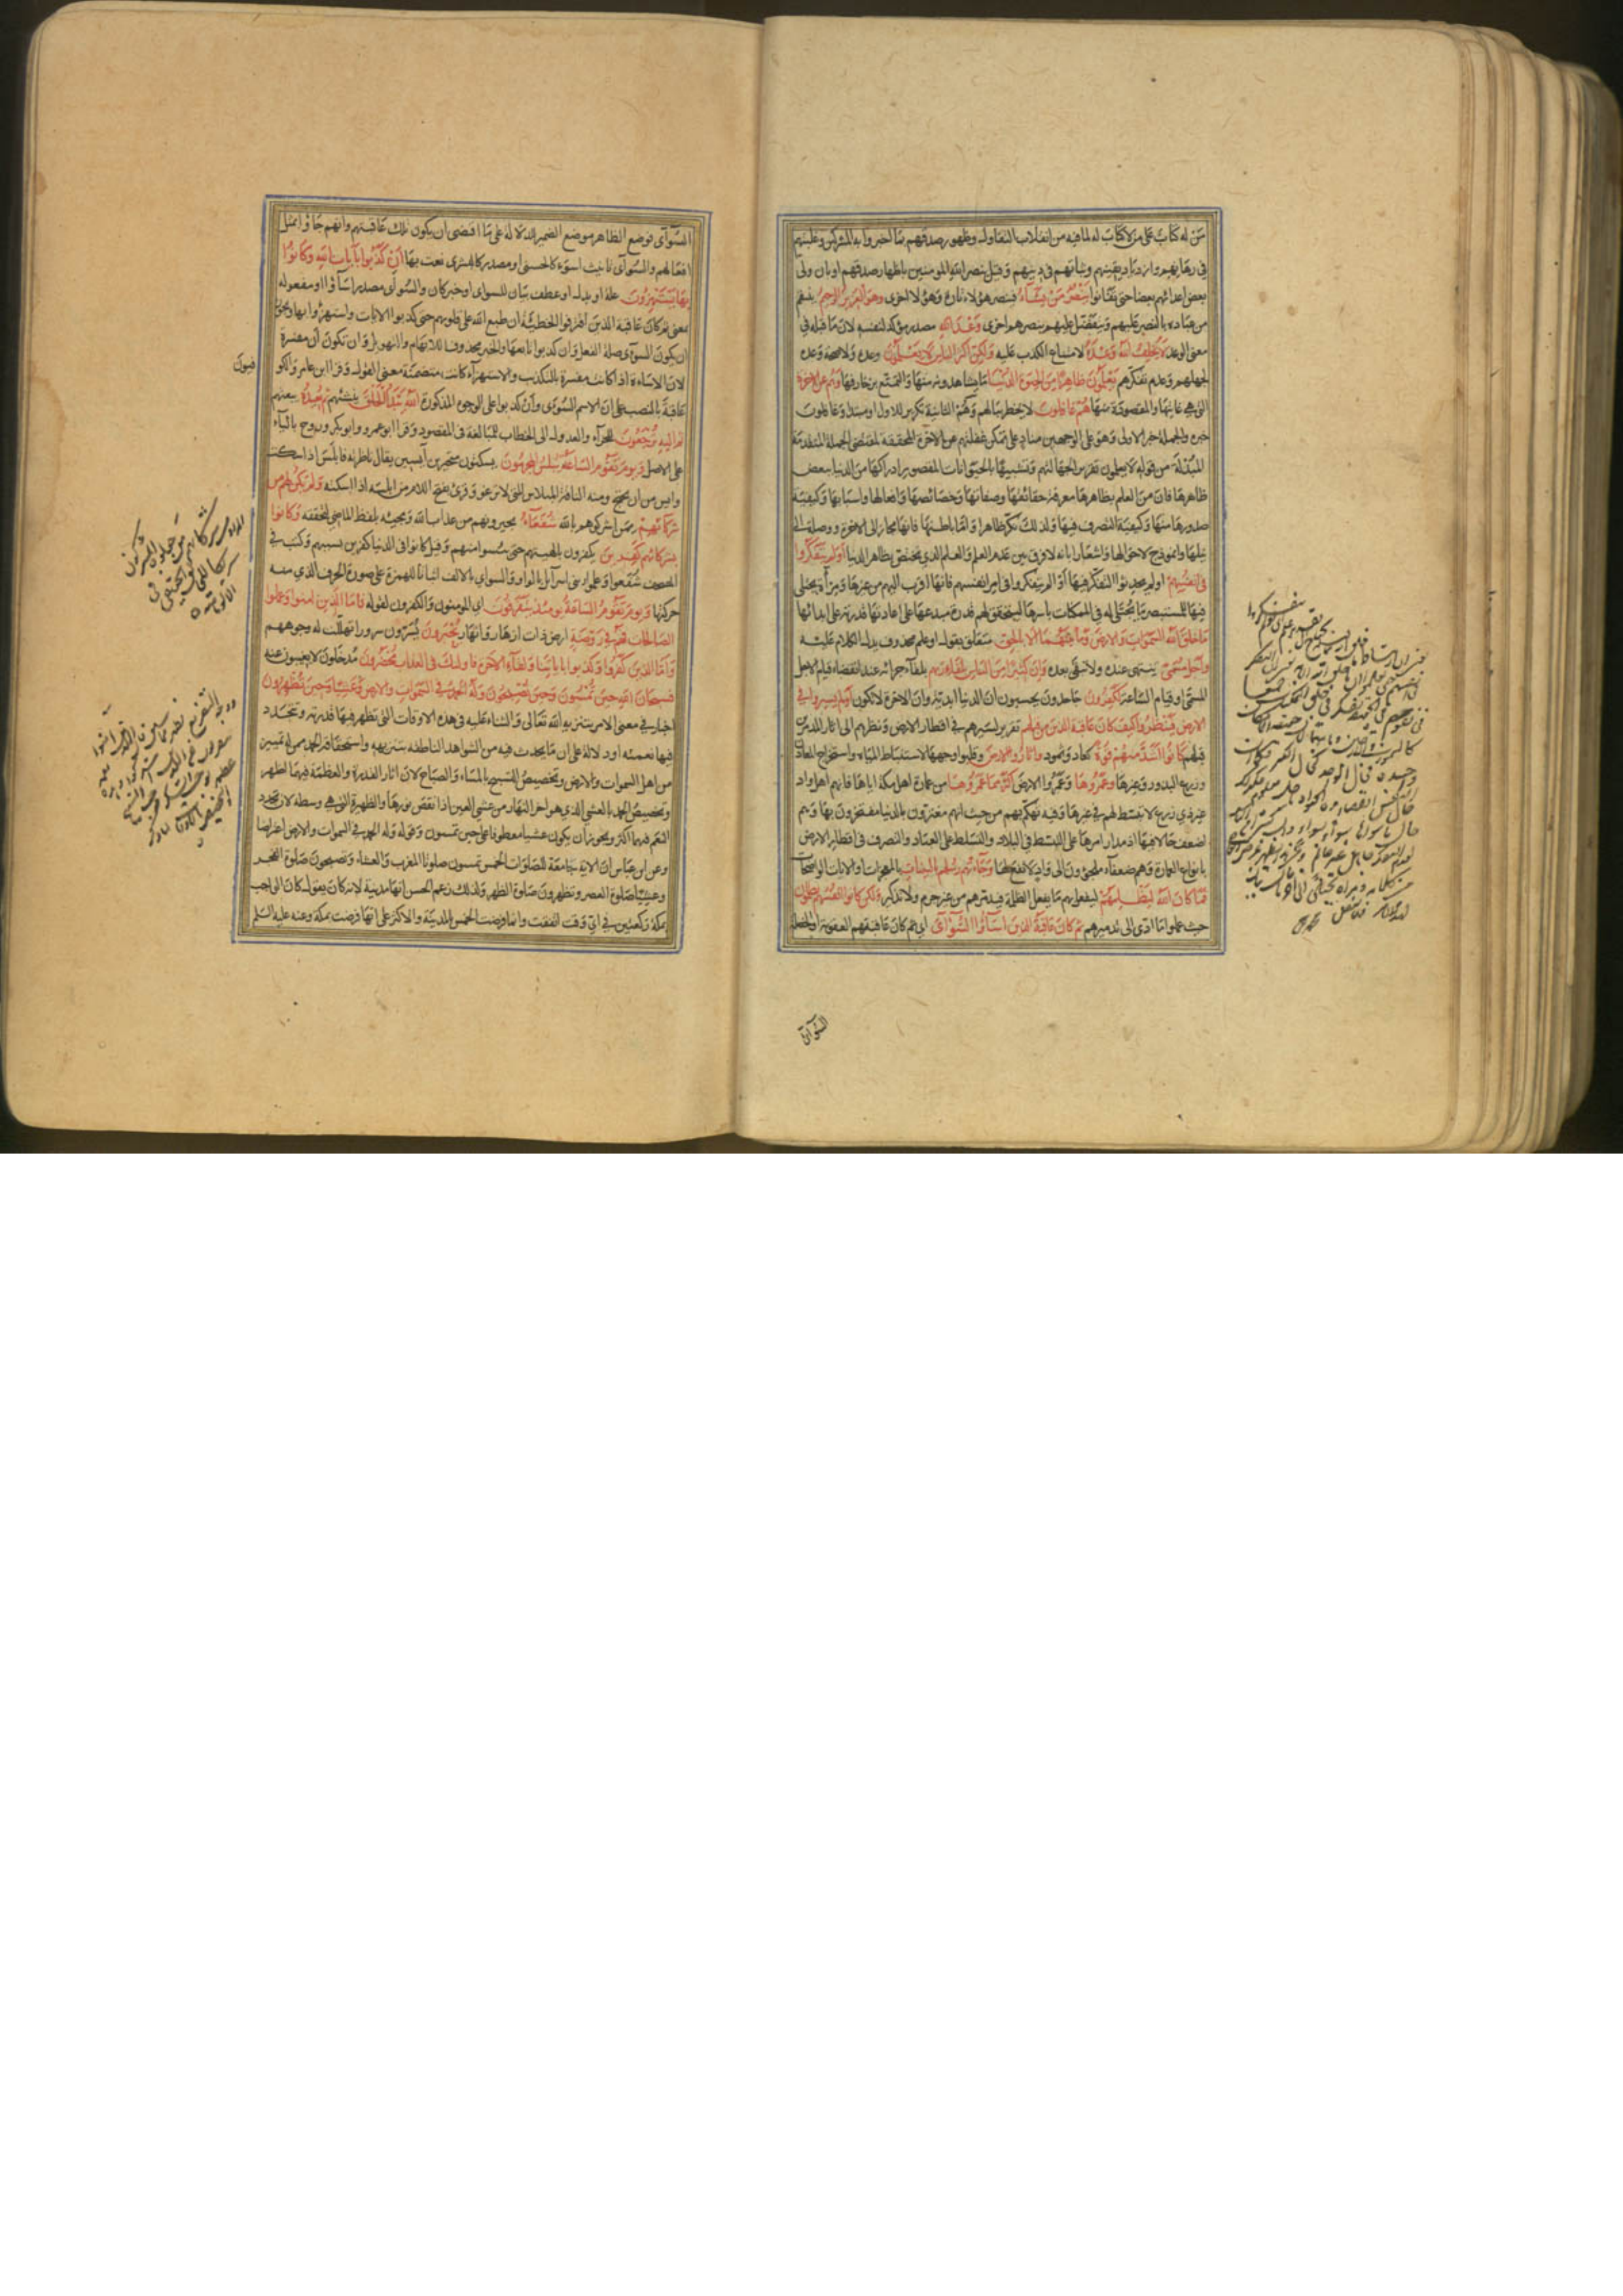 من له كتاب على من لا كتاب له لما فيه من انقلاب التفاول وظهور صدقهم بما اخبروا به المشركين وغلبتهم
في رهانهم وازدياد يقينهم وثباتهم في دينهم وقيل بنصر الله المؤمنين باظهار صدقهم او بان ولى
بعض اعدائهم بعضا حتى تفانوا ينصر من يشاء فينصر هؤلاء تارة وهؤلاء اخرى وهو العزيز الرحيم ينتقم
من عباده بالنصر عليهم ويتفضل عليهم بنصرهم اخرى وعد الله مصدر مؤكد لنفسه لان ما قبله في
معنى الوعد لا يخلف الله وعده لامتناع الكذب عليه ولكن اكثر الناس لا يعلمون وعده ولا صحة وعده
لجهلهم وعدم تفكرهم يعلمون ظاهرا من الحيوة الدنيا ما يشاهدونه منها والتمتع بزخارفها وهم عن الاخرة
التي هي غايتها والمقصودة منها هم غافلون لا يخطر ببالهم وهم الثانية تكرير للاولى او مبتدأ وغافلون
خبره والجملة خبر الاولى وهو على الوجهين مناد على تمكن غفلتهم عن الاخرة المحققة لمقتضى الجملة المتقدمة
المبدلة من قوله لا يعلمون تقريرا لجهالتهم وتشبيها بالحيوانات المقصور ادراكها من الدنيا ببعض
ظاهرها فان من العلم بظاهرها معرفة حقائقها وصفاتها وخصائصها وافعالها واسبابها وكيفية
صدورها منها وكيفية التصرف فيها ولذلك نكر ظاهرا واما باطنها فانها مجاز الى الاخرة ووصلة الى
نيلها وانموذج لاحوالها واشعارا بانه لا فرق بين عدم العلم والعلم الذي يختص بظاهر الدنيا اولم يتفكروا
في انفسهم اولم يحدثوا التفكر فيها او اولم يتفكروا في امر انفسهم فانها اقرب اليهم من غيرها ومرآة يجتلى
فيها للمستبصر ما يجتلى له في الممكنات باسرها ليتحقق لهم قدرة مبدعها على اعادتها قدرته على ابدائها
ما خلق الله السموات والارض وما بينهما الا بالحق متعلق بقول او علم محذوف يدل الكلام عليه
واجل مسمى ينتهى عنده ولا تبقى بعده وان كثيرا من الناس بلقاء ربهم بلقاء جزائه عند انقضاء قيام الاجل
المسمى وقيام الساعة لكافرون جاحدون يحسبون ان الدنيا ابدية وان الاخرة لا تكون اولم يسيروا في
الارض فينظروا كيف كان عاقبة الذين من قبلهم تقرير لسيرهم في اقطار الارض ونظرهم الى اثار المدمرين
قبلهم كانوا اشد منهم قوة كعاد وثمود واثاروا الارض وقلبوا وجهها لاستنباط المياه واستخراج المعادن
وزرع البذور وغيرها وعمروها وعمروا الارض اكثر مما عمروها من عمارة اهل مكة اياها فانهم اهل واد
غير ذي زرع لا تبسط لهم في غيرها وفيه تهكم بهم من حيث انهم مغترون بالدنيا مفتخرون بها وهم
اضعف حالا فيها اذ مدار امرها على التبسط في البلاد والتسلط على العباد والتصرف في اقطار الارض
بانواع العمارة وهم ضعفاء ملجؤون الى واد لا نفع لها وجاءتهم رسلهم بالبينات بالمعجزات والايات الواضحات
فما كان الله ليظلمهم ليفعل بهم ما يفعل الظلمة فيدمرهم من غير جرم ولا تذكير ولكن كانوا انفسهم يظلمون
حيث عملوا ما ادى الى تدميرهم ثم كان عاقبة الذين اساؤا السوآى اي ثم كان عاقبتهم العقوبة او الخصلة
السوآى
السوآى فوضع الظاهر موضع الضمير للدلالة على ما اقتضى ان يكون تلك عاقبتهم وانهم جاؤا بمثل
افعالهم والسوآى تانيث اسوء كالحسنى او مصدر كالبشرى نعت بها ان كذبوا بآيات الله وكانوا
بها يستهزؤن علة او بدل او عطف بيان للسوآى او خبر كان والسوآى مصدر اساؤا او مفعوله
بمعنى ثم كان عاقبة الذين اقترفوا الخطيئة ان طبع الله على قلوبهم حتى كذبوا الايات واستهزؤا بها ويجوز
ان يكون السوآى صلة الفعل وان كذبوا تابعها والخبر محذوفا للابهام والتهويل وان تكون ان مفسرة
لان الاساءة اذا كانت مفسرة بالتكذيب والاستهزاء كانت متضمنة معنى القول وقرا ابن عامر والكو
فيون
عاقبة بالنصب على ان الاسم السوآى وان كذبوا على الوجوه المذكورة الله يبدأ الخلق ينشئهم ثم يعيده يبعثهم
ثم اليه ترجعون للجزاء والعدول الى الخطاب للمبالغة في المقصود وقرا ابو عمرو وابو بكر وروح بالياء
على الاصل ويوم تقوم الساعة يبلس المجرمون يسكتون متحيرين آيسين يقال ناظرته فابلس اذا سكت
وايس من ان يحتج ومنه الناقة المبلاس التي لا ترغو وقرئ بفتح اللام من ابلسه اذا اسكته ولم يكن لهم من
شركائهم ممن اشركوهم بالله شفعاء يجيرونهم من عذاب الله ومجيئه بلفظ الماضي لتحققه وكانوا
بشركائهم كافرين يكفرون بالهتهم حين يئسوا منهم وقيل كانوا في الدنيا كافرين بسببهم وكتب في
المصحف شفعوا وعلموا بني اسرآئل بالواو والسوآى بالالف اثباتا للهمزة على صورة الحرف الذي منه
حركتها ويوم تقوم الساعة يومئذ يتفرقون اي المؤمنون والكفرون لقوله فاما الذين امنوا وعملوا
الصالحات فهم في روضة ارض ذات ازهار وانهار يحبرون يسرون سرورا تهللت له وجوههم
واما الذين كفروا وكذبوا باياتنا ولقاء الاخرة فاولئك في العذاب محضرون مدخلون لا يغيبون عنه
فسبحان الله حين تمسون وحين تصبحون وله الحمد في السموات والارض وعشيا وحين تظهرون
اخبار في معنى الامر بتنزيه الله تعالى والثناء عليه في هذه الاوقات التي تظهر فيها قدرته وتتجدد
فيها نعمته او دلالة على ان ما يحدث فيه من الشواهد الناطقة بتنزيهه واستحقاقه الحمد ممن له تمييز
من اهل السموات والارض وتخصيص التسبيح بالمساء والصباح لان اثار القدرة والعظمة فيهما اظهر
وتخصيص الحمد بالعشي الذي هو اخر النهار من عشى العين اذا نقص نورها والظهيرة التي هي وسطه لان تجدد
النعم فيهما اكثر ويجوز ان يكون عشيا معطوفا على حين تمسون وقوله وله الحمد في السموات والارض اعتراضا
وعن ابن عباس ان الاية جامعة للصلوات الخمس تمسون صلوتا المغرب والعشاء وتصبحون صلوة الفجر
وعشيا صلوة العصر وتظهرون صلوة الظهر ولذلك زعم الحسن انها مدنية لانه كان يقول كان الواجب
بمكة ركعتين في اي وقت اتفقت وانما فرضت الخمس بالمدينة والاكثر على انها فرضت بمكة وعنه عليه السلم